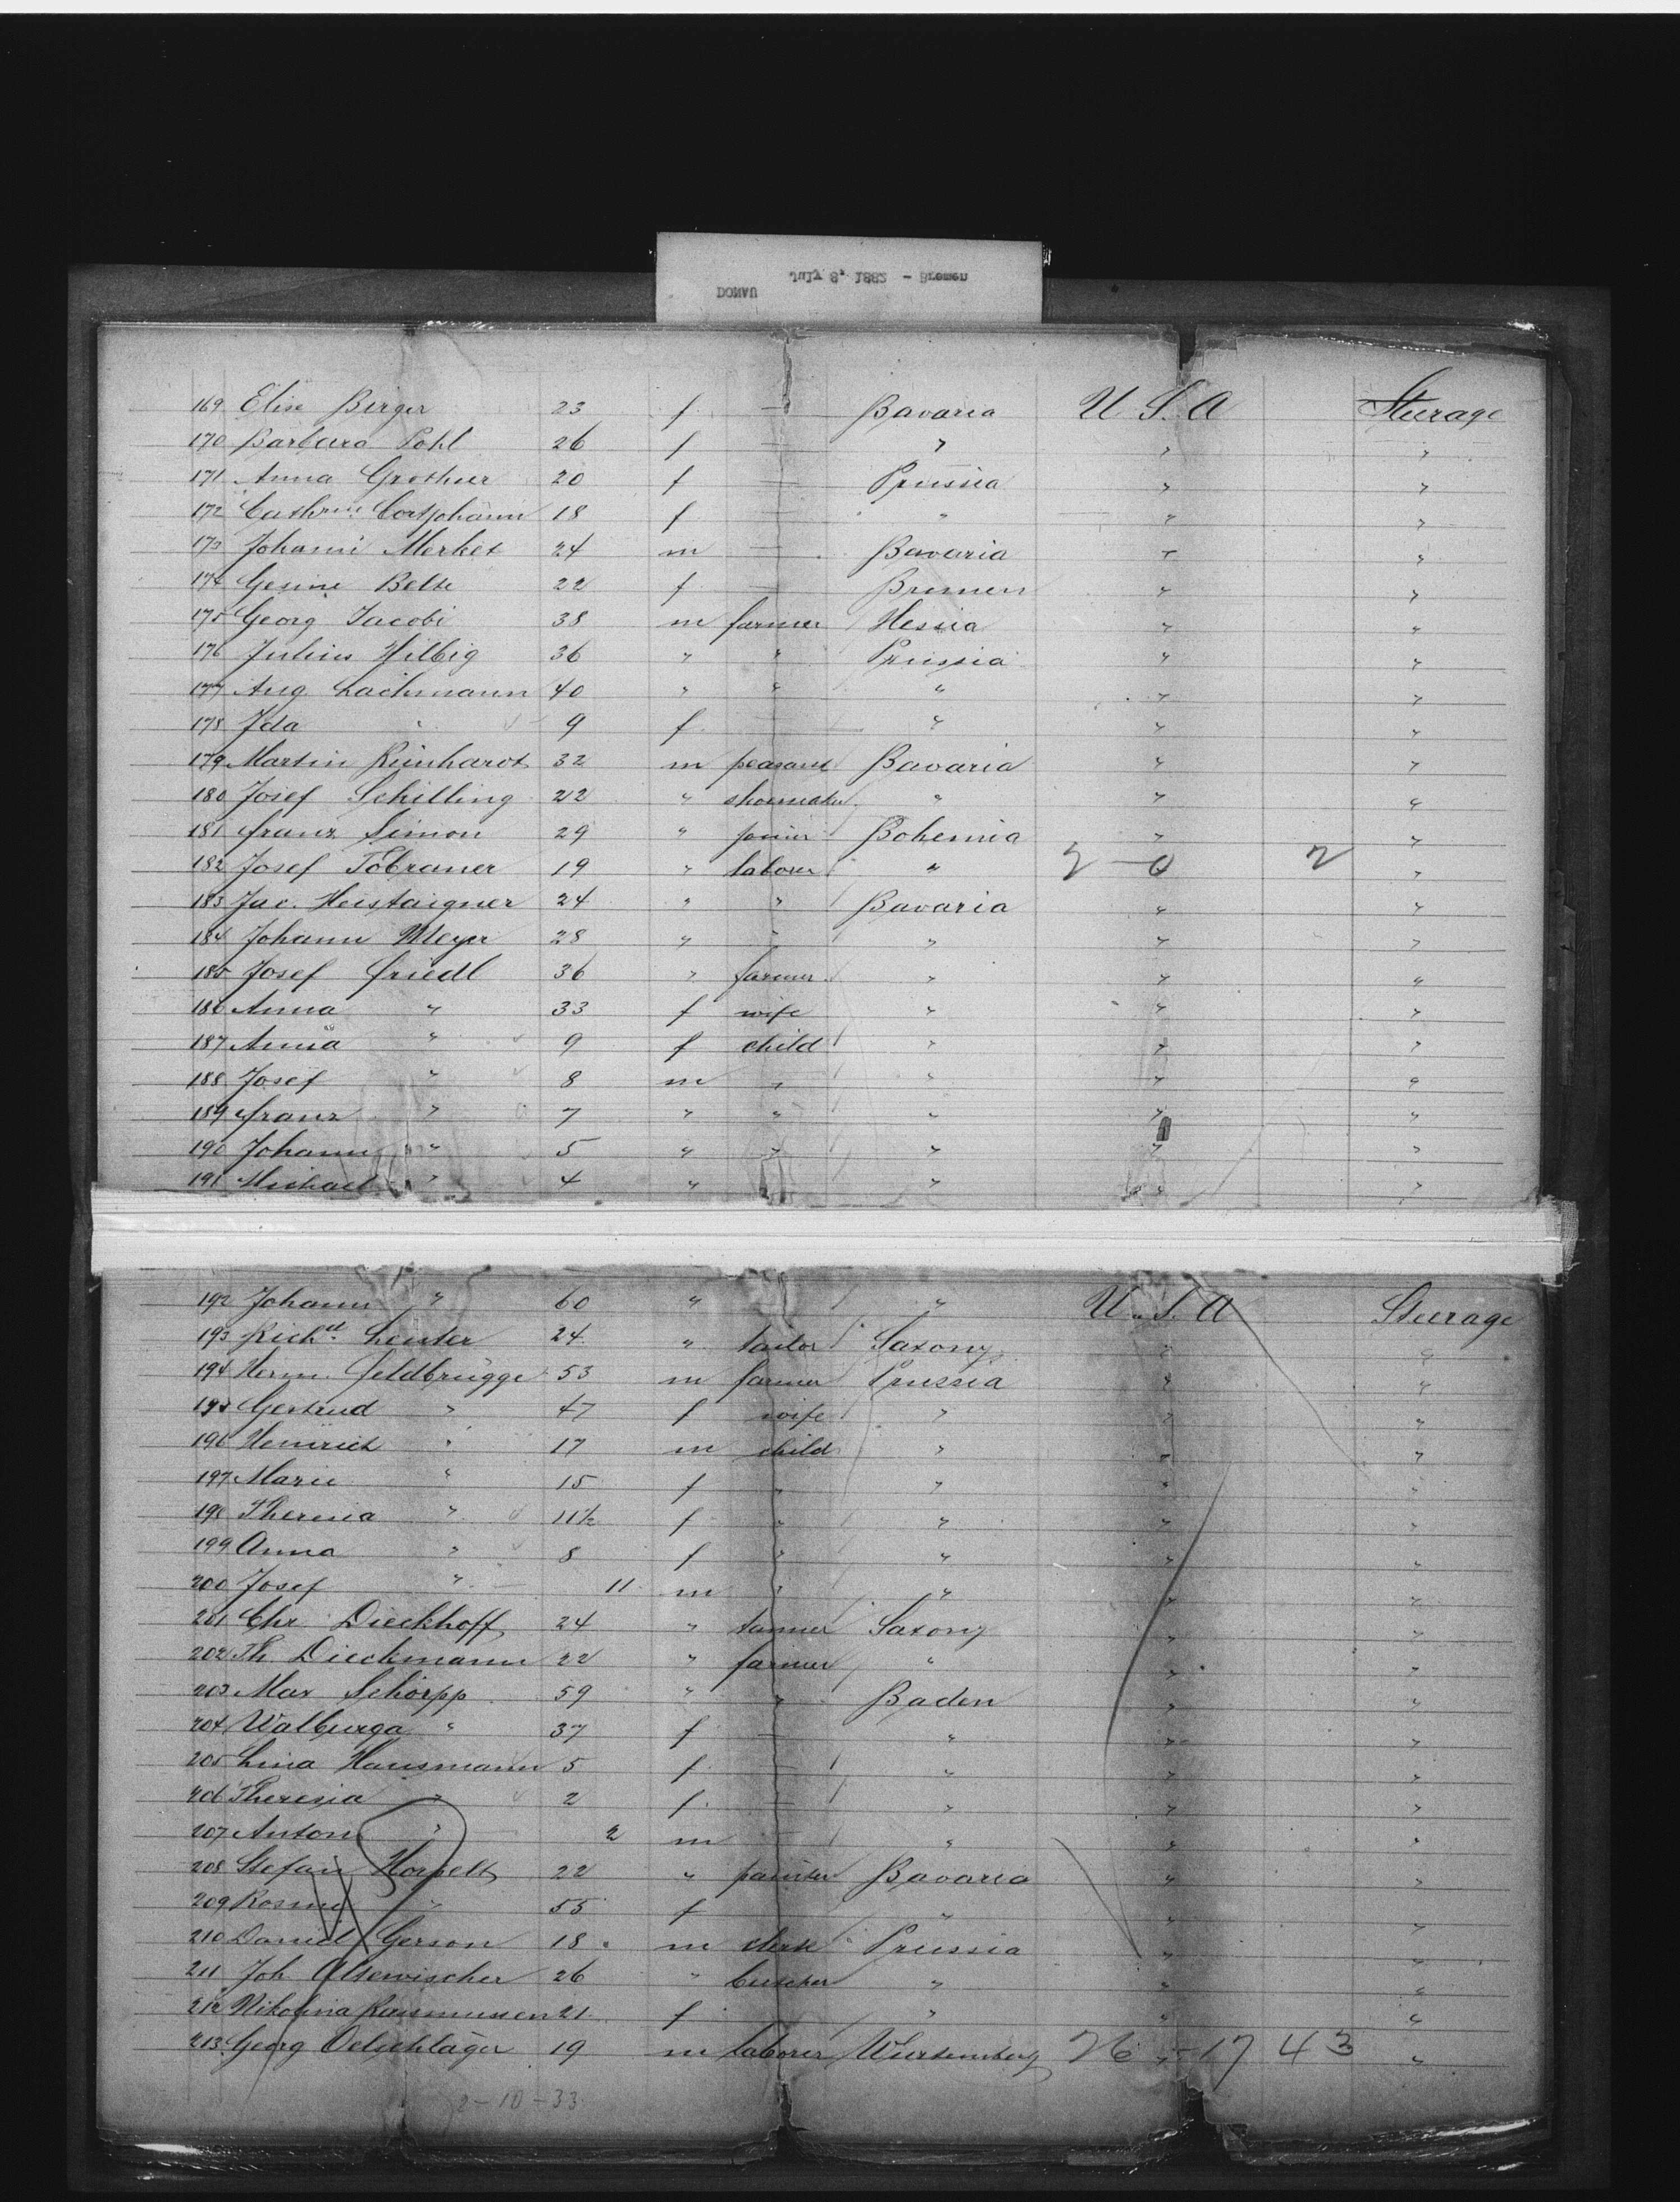 DONAU July 8, 1882 - Bremen
169 Elise Birger 23 f — Bavaria U.S.A Steerage
170 Barbara Pohl 26 f — " " "
171 Anna Grotheer 20 f — Prussia " "
172 Cathrine 18 f — " " "
173 Johann Merket 24 m — Bavaria " "
174 Gesine Belte 22 f — Bremen " "
175 Georg Jacobi 38 m farmer Hessia " "
176 Julius Hilbig 36 " " Prussia " "
177 Aug. Lachmann 40 " " " " "
178 Ida " 9 f — " " "
179 Martin Reinhardt 32 m peasant Bavaria " "
180 Josef Schilling 22 " shoemaker " " "
181 Franz Simon 29 " joiner Bohemia " "
182 Josef Tobraner 19 " laborer " 2 - 0 2 "
183 Jac. Heistaigner 24 " " Bavaria " "
184 Johann Meyer 28 " " " " "
185 Josef Friedl 36 " farmer " " "
186 Anna " 33 f wife " " "
187 Anna " 9 f child " " "
188 Josef " 8 m " " " "
189 Franz " 7 " " " " "
190 Johann " 5 " " " " "
191 Michael " 4 " " " "
192 Johann " 60 " " U.S.A Steerage
193 Richd. Leuter 24 " tailor Saxony " "
194 Herm. Feldbrügge 53 m farmer Prussia " "
195 Gertrud " 47 f wife " " "
196 Heinrich " 17 m child " " "
197 Marie " 15 f " " " "
198 Theresia " 11½ f " " " "
199 Anna " 8 f " " " "
200 Josef " 11 m " " " "
201 Chr. Dieckhoff 24 " tanner Saxony " "
202 Th. Dieckmann 22 " farmer " " "
203 Max Schörpp 59 " " Baden " "
204 Walburga " 37 f — " " "
205 Lina Hausmann 5 f — " " "
206 Theresia " 2 f — " " "
207 Anton " 2 m — " " "
208 Stefan Horpelt 22 " painter Bavaria " "
209 Rosine " 55 f " " "
210 Daniel Gerson 18 m clerk Prussia " "
211 Joh Altewischer 26 " butcher " " "
212 Nikolina Rasmussen 21 f " " "
213 Georg Oelschläger 19 m laborer Würtemberg 26 - 17 43 "
2-10-33